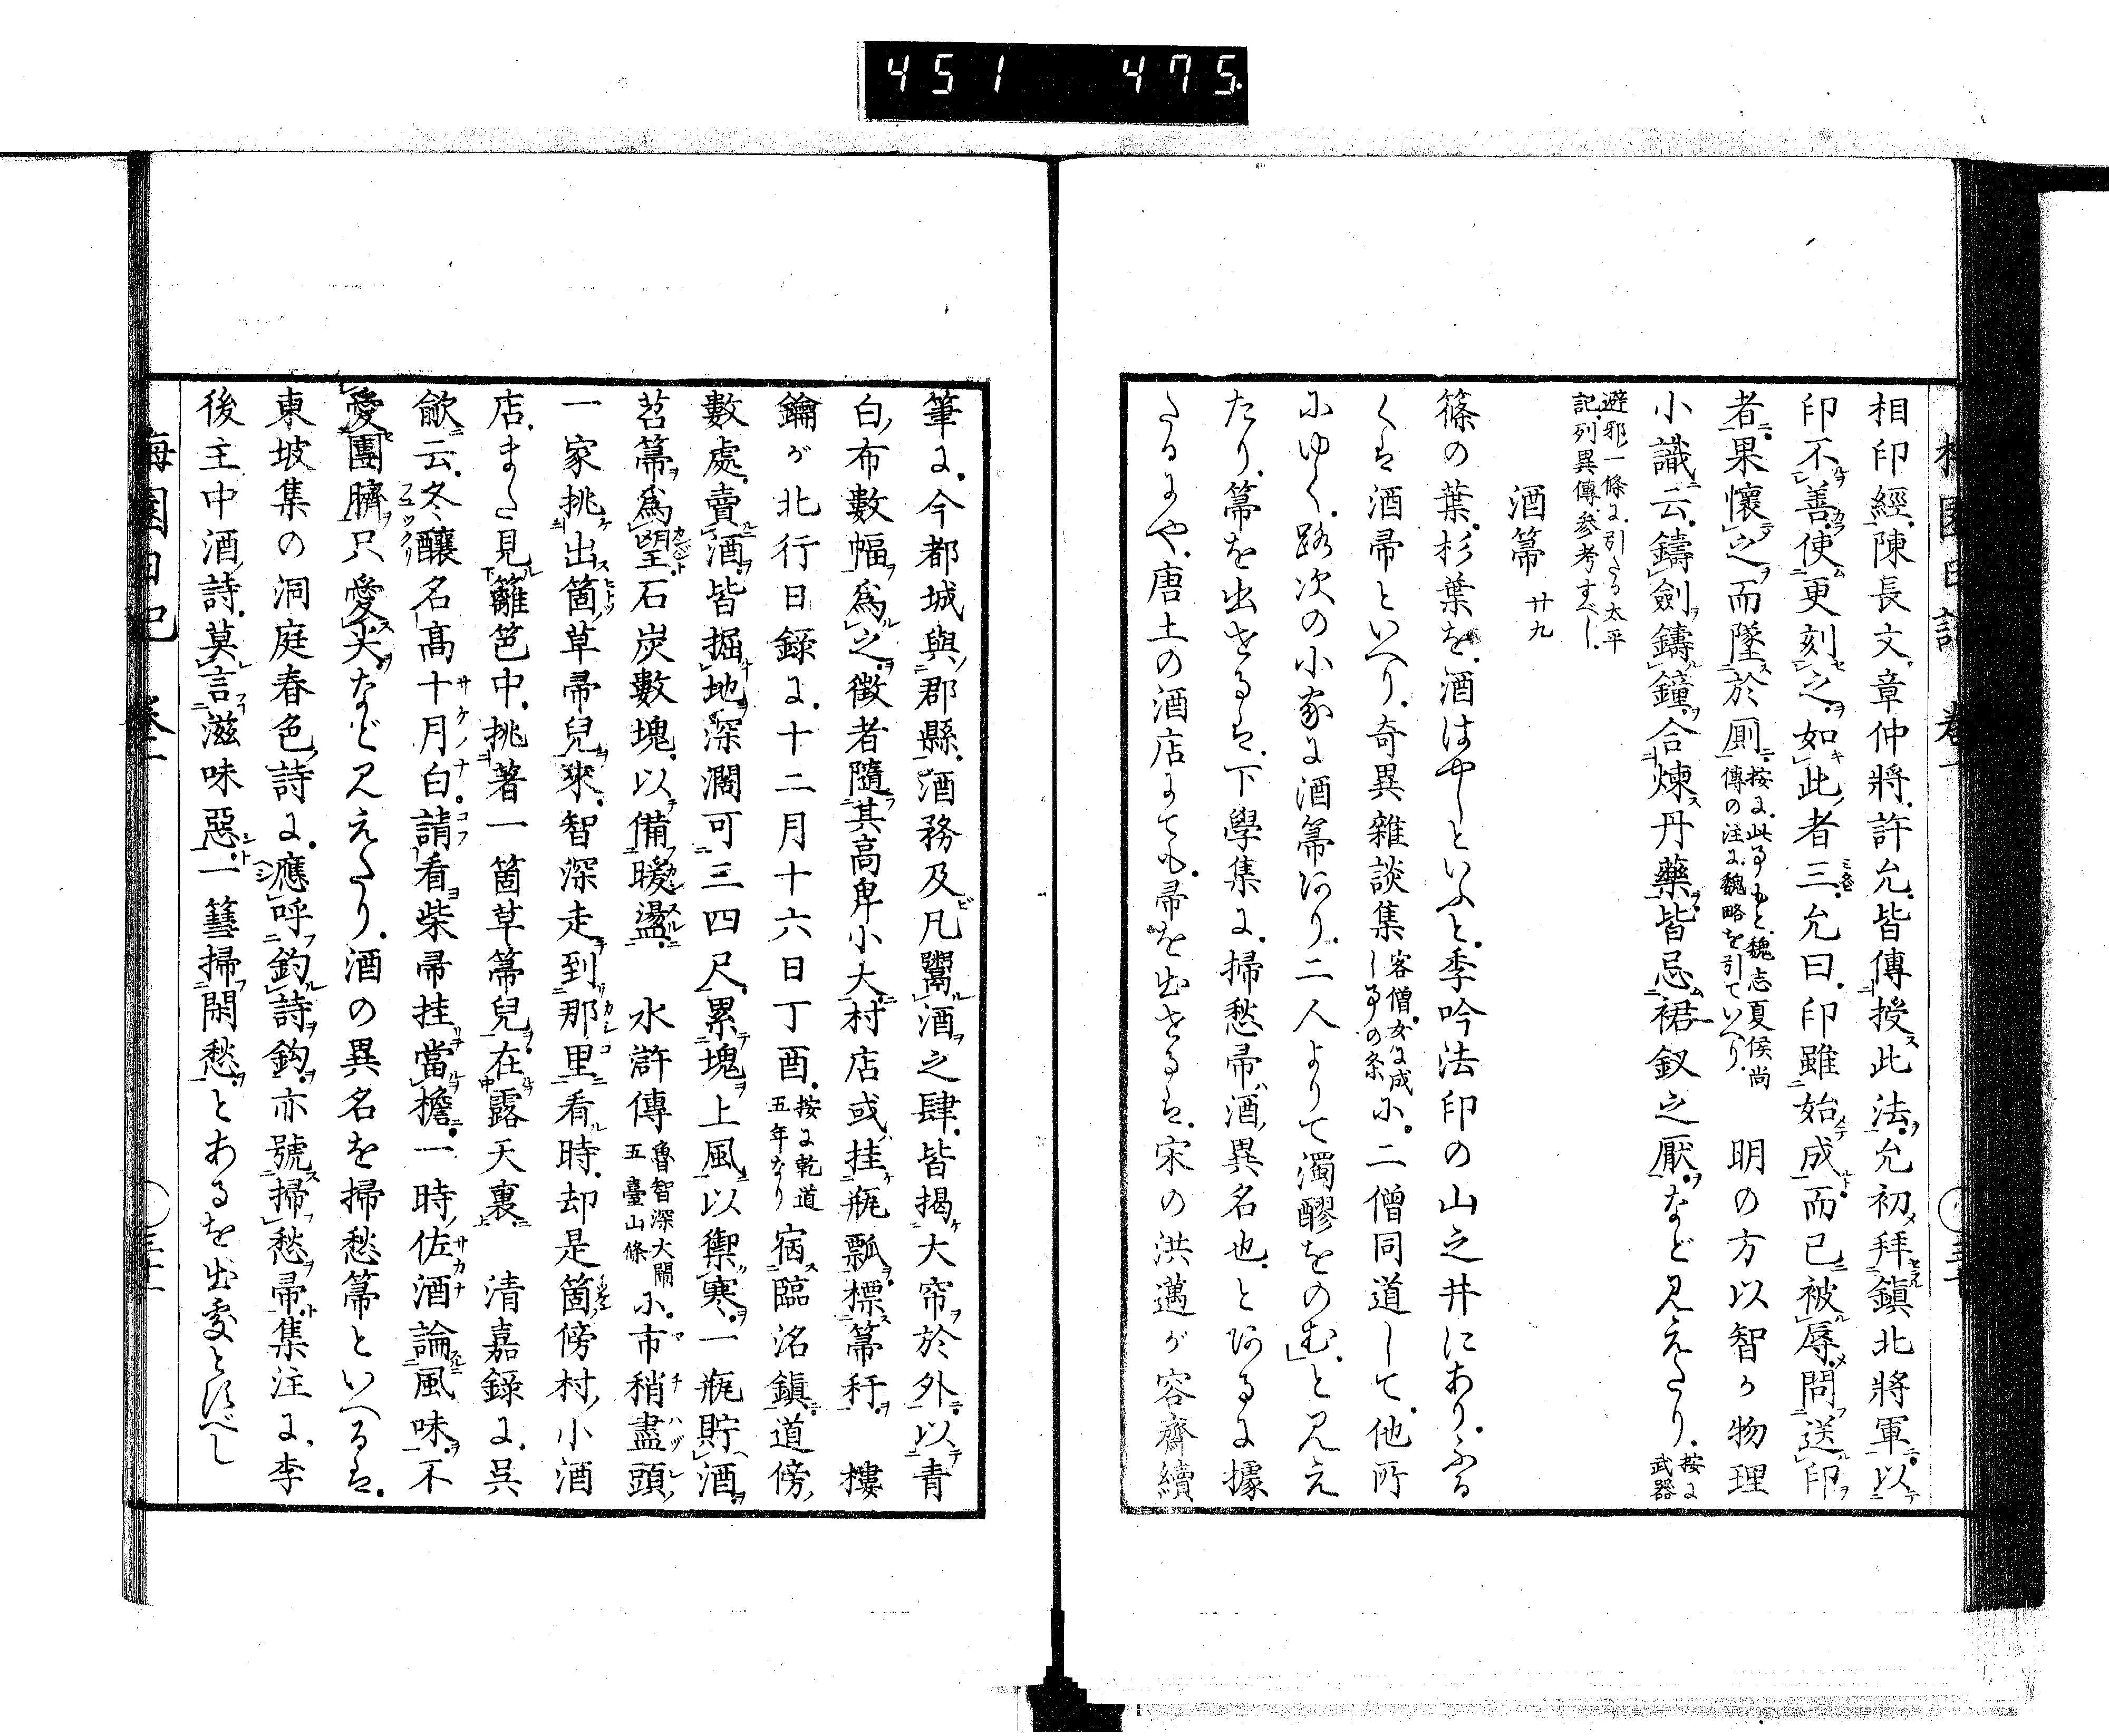 451 475
梅園日記 卷一 三十
相印經陳長文章仲將許允皆傳授此法允初拜鎭北將軍以
印不善使更刻之如此者三允曰印雖始成而已被辱問送印
者果懷之而墜於厠 按に此事もと魏志夏侯尚傳の注に魏略を引ていへり 明の方以智か物理
小識云鑄劒鑄鐘合煉丹藥皆忌裙釵之厭など見えたり 按に武器
避邪一條に引たる太平記列異傳參考すべし
酒箒 廿九
篠の葉杉葉を酒はやしといふと季吟法印の山之井にありふる
くは酒帚といへり奇異雜談集 客僧女に成し事の条 に二僧同道して他所
にゆく路次の小家に酒箒あり二人よりて濁醪をのむと見え
たり箒を出せるは下學集に掃愁帚酒異名也とあるに據
たるにや唐土の酒店にても帚を出せるは宋の洪邁が容齋續
筆に今都城與郡縣酒務及凡鬻酒之肆皆揭大帘於外以青
白布數幅爲之徵者隨其高卑小大村店或挂瓶瓢標箒秆 樓
鑰が北行日錄に十二月十六日丁酉 按に乾道五年なり 宿臨洺鎭道傍
數處賣酒皆掘地深濶可三四尺累塊上風以禦寒一瓶貯酒
苕箒爲望石炭數塊以備暖盪 水滸傳 魯智深大鬧五臺山條 に市稍盡頭
一家挑出箇草帚兒來智深走到那里看時却是箇傍村小酒
店また見籬笆中挑著一箇草箒兒在露天裏 清嘉錄に呉
歈云冬釀名高十月白請看柴帚挂當檐一時佐酒論風味不
愛團臍只愛尖など見えたり酒の異名を掃愁箒といへるは
東坡集の洞庭春色詩に應呼釣詩鈎亦號掃愁帚集注に李
後主中酒詩莫言滋味惡一篲掃閑愁とあるを出處とすべし
梅園日記 卷一 三十一